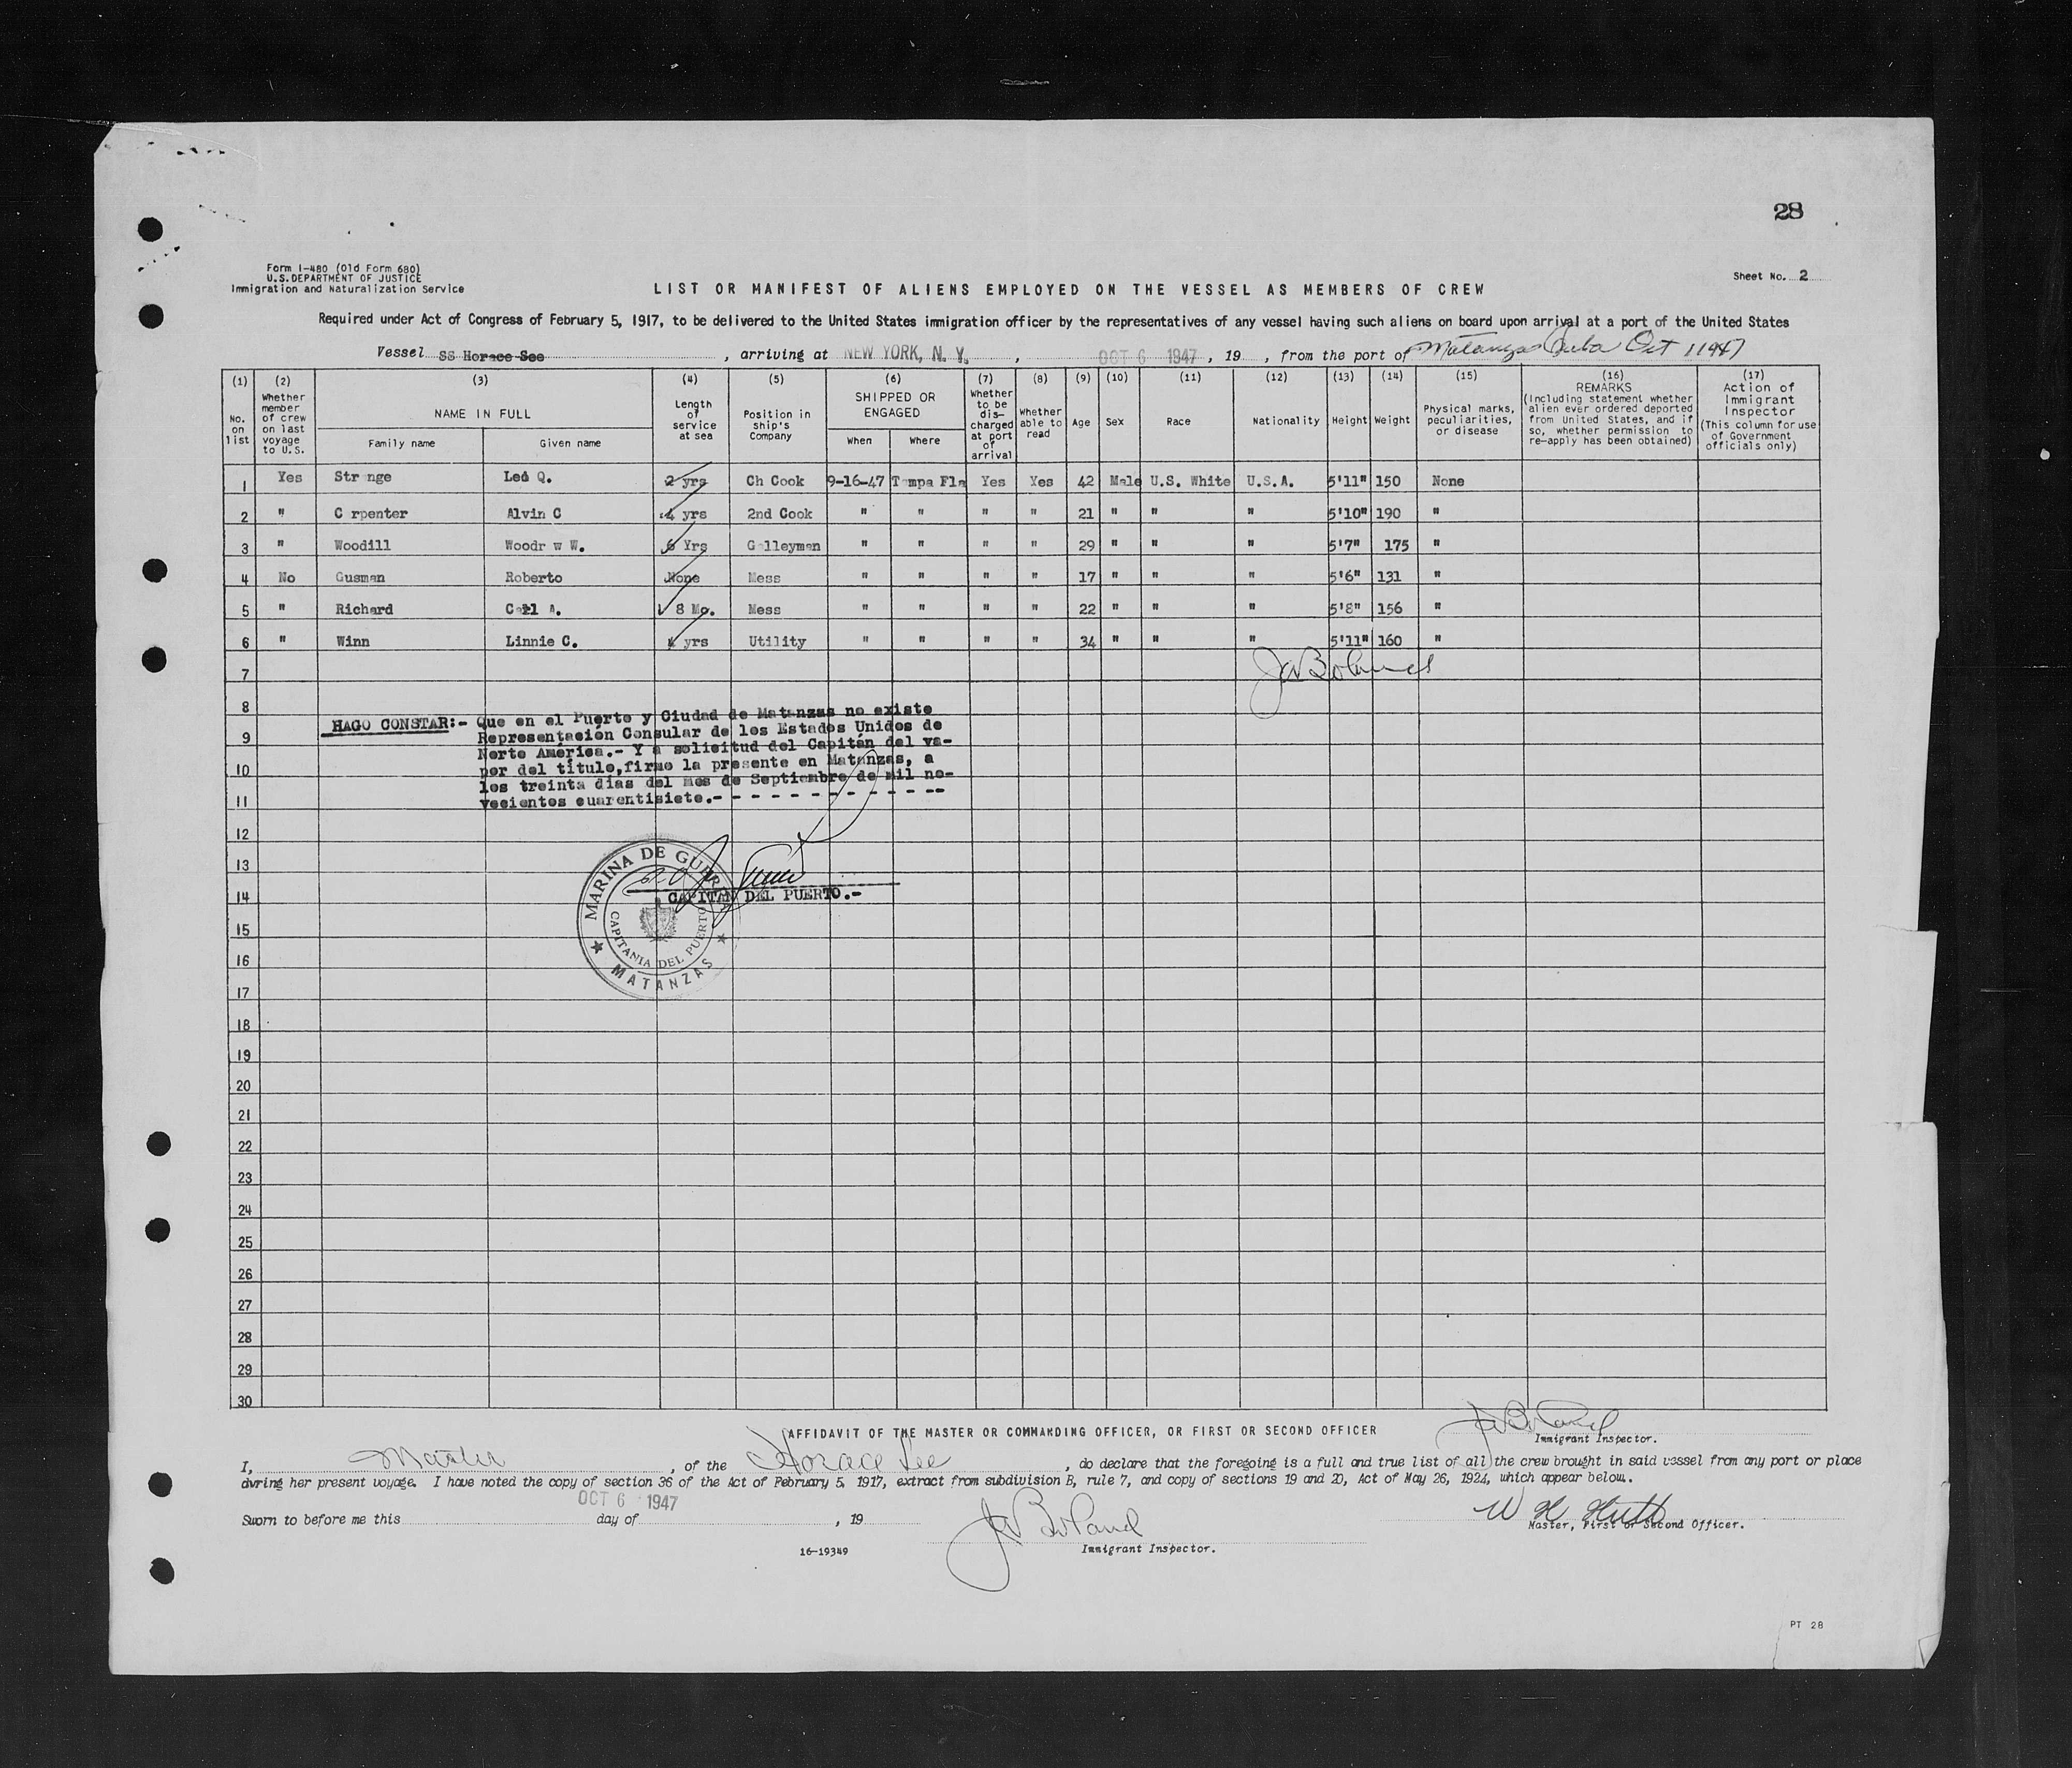 28
Form I-480 (Old Form 680)
U.S. DEPARTMENT OF JUSTICE
Immigration and Naturalization Service
Sheet No. 2
LIST OR MANIFEST OF ALIENS EMPLOYED ON THE VESSEL AS MEMBERS OF CREW
Required under Act of Congress of February 5, 1917, to be delivered to the United States immigration officer by the representatives of any vessel having such aliens on board upon arrival at a port of the United States
Vessel SS Horace See , arriving at NEW YORK, N. Y. , OCT 6 1947 , 19 , from the port of Matanzas Cuba Oct 1 1947
(1) (2) (3) (4) (5) (6) (7) (8) (9) (10) (11) (12) (13) (14) (15) (16) (17)
No. on list
Whether member of crew on last voyage to U.S.
NAME IN FULL
Family name
Given name
Length of service at sea
Position in ship's Company
SHIPPED OR ENGAGED
When
Where
Whether to be dis-charged at port of arrival
Whether able to read
Age
Sex
Race
Nationality
Height
Weight
Physical marks, peculiarities, or disease
REMARKS
(Including statement whether alien ever ordered deported from United States, and if so, whether permission to re-apply has been obtained)
Action of Immigrant Inspector
(This column for use of Government officials only)
1 Yes Str nge Leo Q. 2 yrs Ch Cook 9-16-47 Tampa Fla Yes Yes 42 Male U.S. White U.S.A. 5'11" 150 None
2 " C rpenter Alvin C 4 yrs 2nd Cook " " " " 21 " " " 5'10" 190 "
3 " Woodill Woodr w W. 6 Yrs Galleyman " " " " 29 " " " 5'7" 175 "
4 No Gusman Roberto None Mess " " " " 17 " " " 5'6" 131 "
5 " Richard Carl A. 8 Mo. Mess " " " " 22 " " " 5'8" 156 "
6 " Winn Linnie C. 4 yrs Utility " " " " 34 " " " 5'11" 160 "
7
8
9
10
11
12
13
14
15
16
17
18
19
20
21
22
23
24
25
26
27
28
29
30
HAGO CONSTAR:- Que en el Puerto y Ciudad de Matanzas no existe
Representación Consular de los Estados Unidos de
Norte América.- Y a solicitud del Capitán del va-
por del título, firmo la presente en Matanzas, a
los treinta días del mes de Septiembre de mil no-
vecientos cuarentisiete.- - - - - - - - - - - - --
CAPITAN DEL PUERTO.-
MARINA DE GUERRA
CAPITANIA DEL PUERTO
MATANZAS
AFFIDAVIT OF THE MASTER OR COMMANDING OFFICER, OR FIRST OR SECOND OFFICER
Immigrant Inspector.
I, Master , of the Horace See , do declare that the foregoing is a full and true list of all the crew brought in said vessel from any port or place
during her present voyage. I have noted the copy of section 36 of the Act of February 5, 1917, extract from subdivision B, rule 7, and copy of sections 19 and 20, Act of May 26, 1924, which appear below.
Sworn to before me this OCT 6 1947 day of , 19
Master, First or Second Officer.
16-19349
Immigrant Inspector.
PT 28